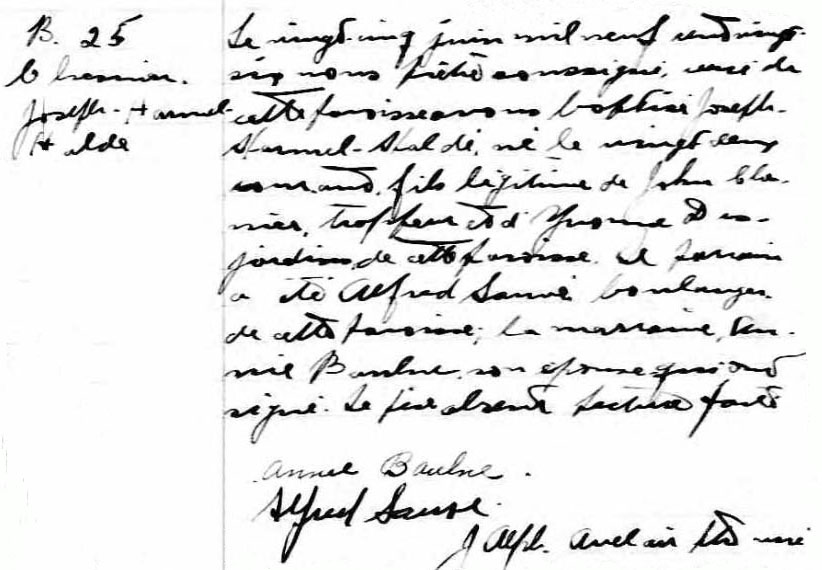 B. 25
Joseph-Harmel
Halde
Le vingt-cinq juin mil neuf cent vingt-
six nous prêtre soussigné, curé de
cette paroisse avons baptisé Joseph-
Harmel-Haldé, né le vingt deux
courant, fils légitime de John
nier, et d'Yvonne Des-
jardins, de cette paroisse. Le parrain
a été Alfred Sauvé boulanger
de cette paroisse; la marraine, An-
nie Baulne, son épouse qui ont
signé. Le père absent Lecture faite
Annie Baulne.
Alfred Sauvé.
J Alph. ptre curé